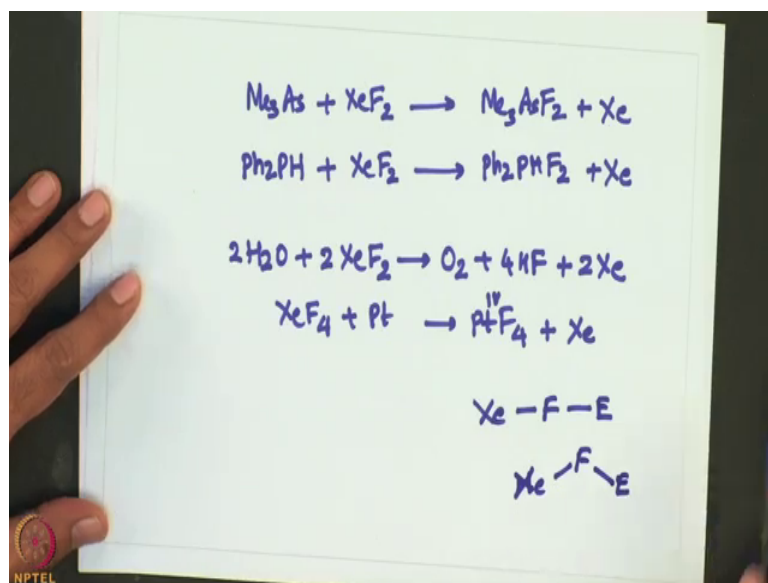 Me₃As + XeF₂ ⟶ Me₃AsF₂ + Xe
Ph₂PH + XeF₂ ⟶ Ph₂PHF₂ + Xe
2H₂O + 2XeF₂ ⟶ O₂ + 4HF + 2Xe
XeF₄ + Pt ⟶ Pt^IV F₄ + Xe
Xe — F — E
Xe F E
NPTEL